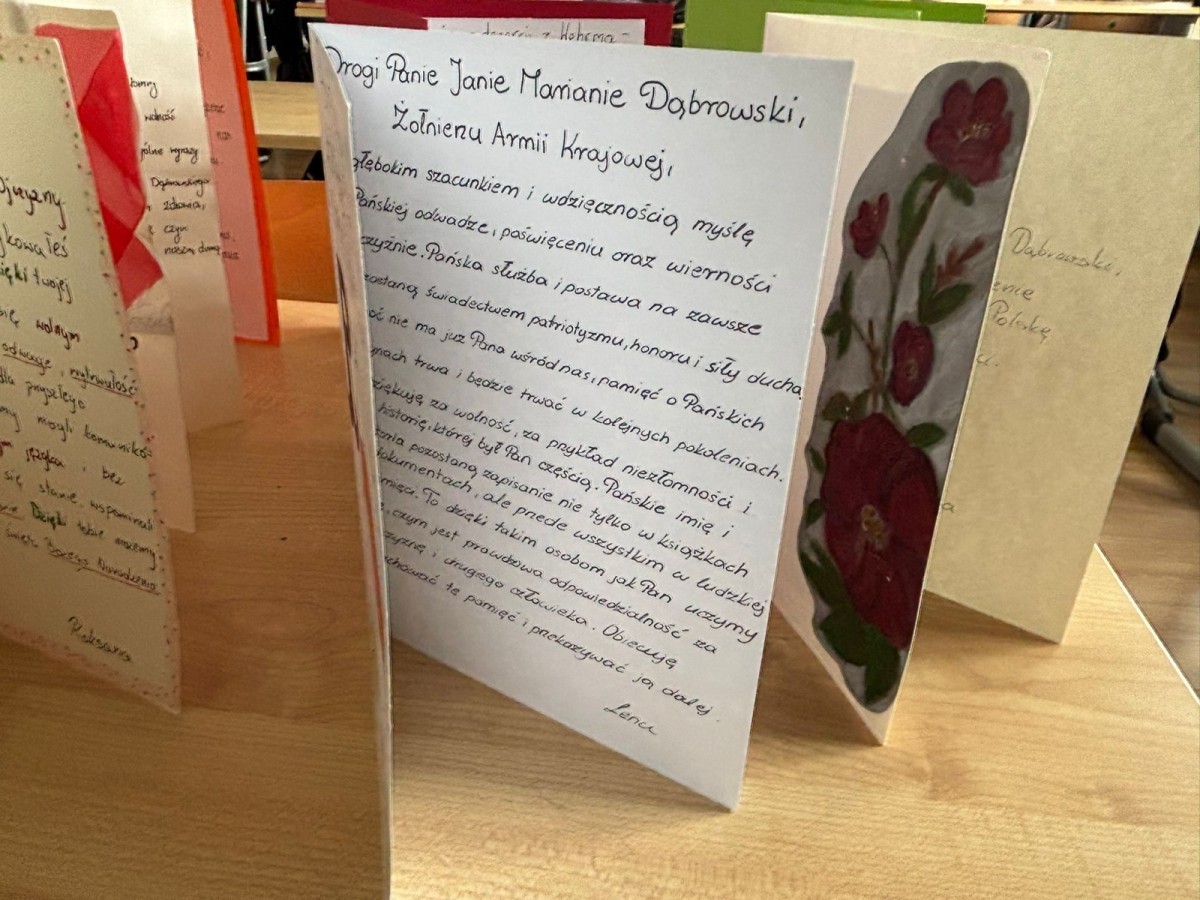 Drogi Panie Janie Marianie Dąbrowski,
Żołnierzu Armii Krajowej,
głębokim szacunkiem i wdzięcznością myślę
Pańskiej odwadze, poświęceniu oraz wierności
czyźnie. Pańska służba i postawa na zawsze
zostaną świadectwem patriotyzmu, honoru i siły ducha
oć nie ma już Pana wśród nas, pamięć o Pańskich
nach trwa i będzie trwać w kolejnych pokoleniach.
ziękuję za wolność, za przykład niezłomności i
historię, której był Pan częścią. Pańskie imię i
enia pozostaną zapisanie nie tylko w książkach
okumentach, ale przede wszystkim w ludzkiej
mięci. To dzięki takim osobom jak Pan uczymy
, czym jest prawdziwa odpowiedzialność za
czyznę i drugiego człowieka. Obiecuję
chować tę pamięć i przekazywać ją dalej.
Lena
Ojczyzny
ykowałeś
zięki twojej
się wolnym
odwagę, wytrwałość
dla przyszłego
my mogli komuniko-
języku, bez
się stanie wspominali
Dzięki tobie możemy
święta Bożego Narodzenia
Roksana
wolność
Dąbrowskiego
zdrowia,
czyn
naszą dumą
Dąbrowski,
Polskę